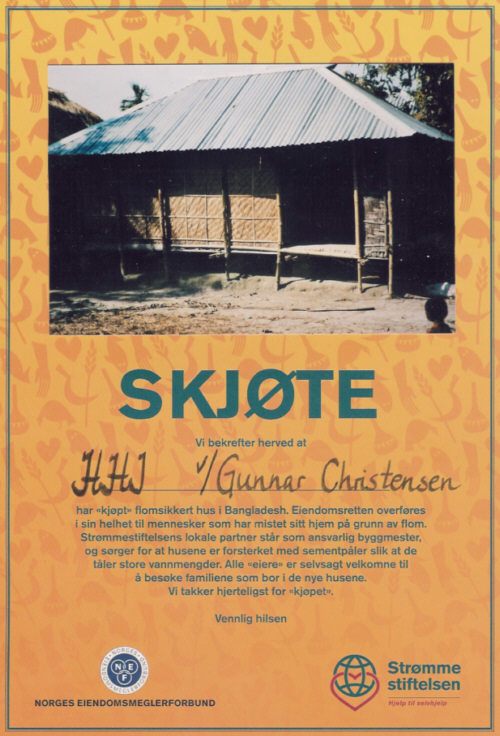 SKJØTE
Vi bekrefter herved at
HHI v/Gunnar Christensen
har «kjøpt» flomsikkert hus i Bangladesh. Eiendomsretten overføres
i sin helhet til mennesker som har mistet sitt hjem på grunn av flom.
Strømmestiftelsens lokale partner står som ansvarlig byggmester,
og sørger for at husene er forsterket med sementpåler slik at de
tåler store vannmengder. Alle «eiere» er selvsagt velkomne til
å besøke familiene som bor i de nye husene.
Vi takker hjerteligst for «kjøpet».
Vennlig hilsen
NEF
NORGES EIENDOMSMEGLERFORBUND
Strømme
stiftelsen
Hjelp til selvhjelp